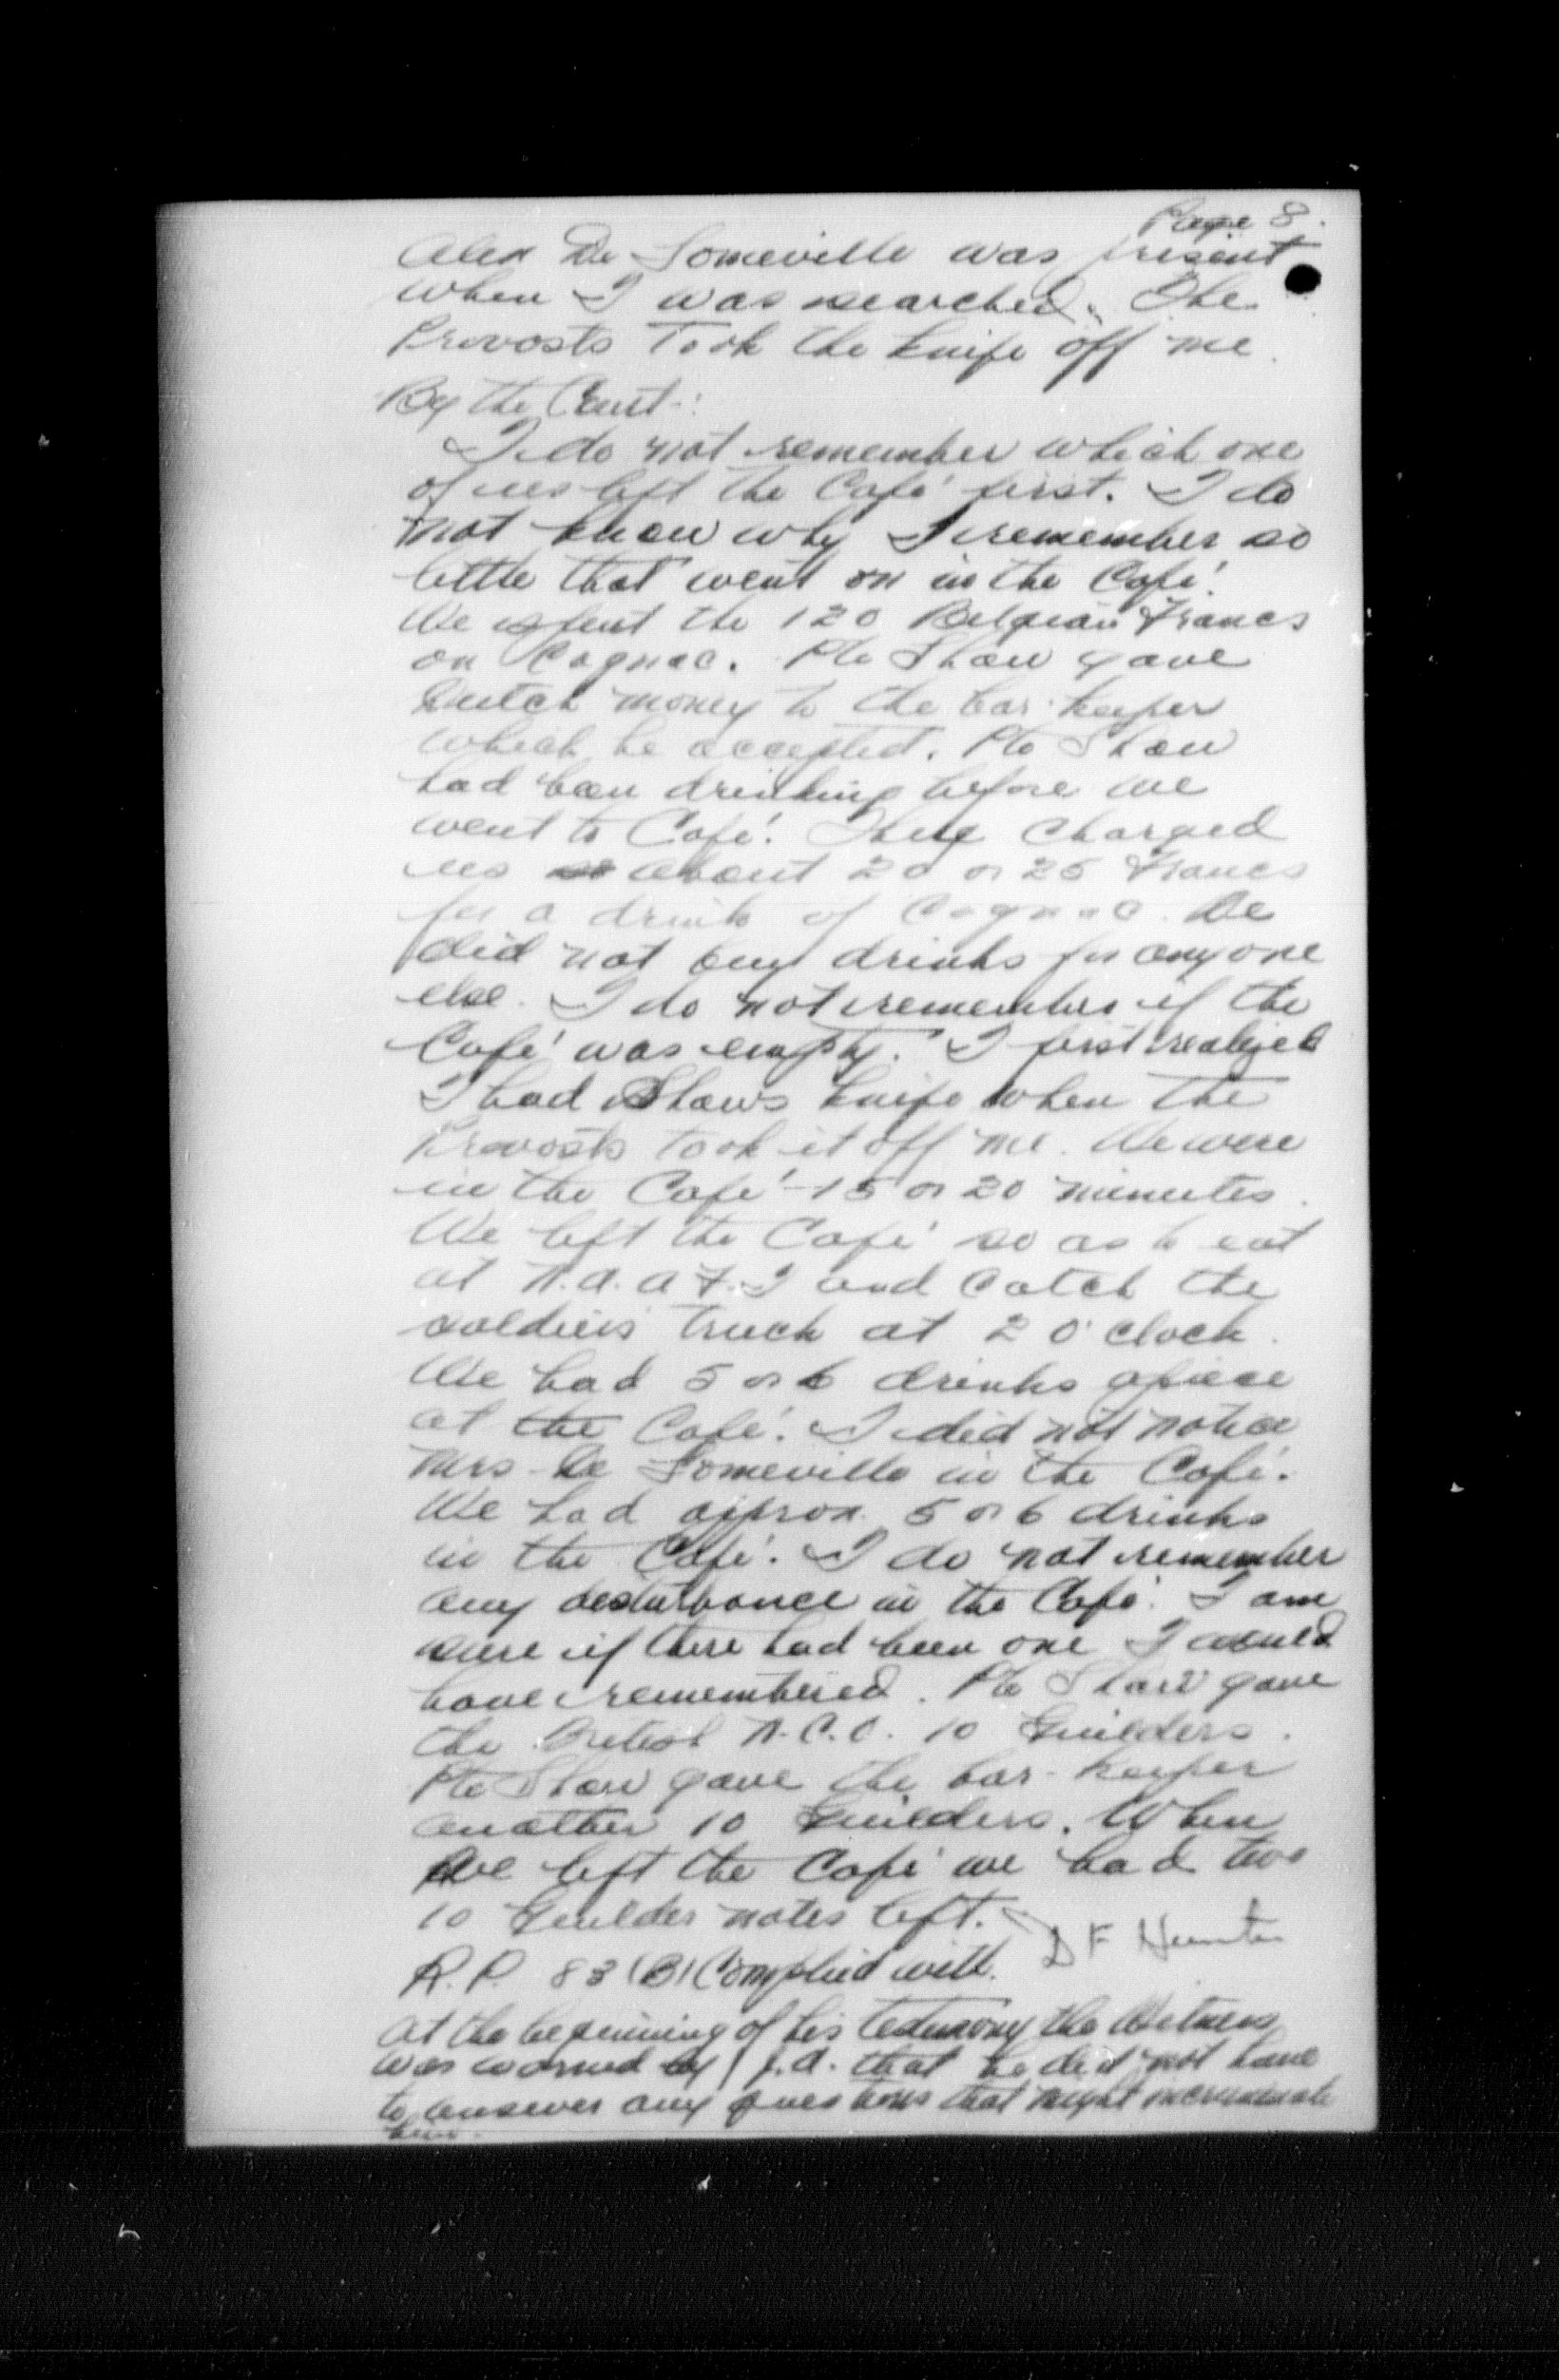 Page 8.
Alex De Someville was present
when I was searched. The
Provosts Took the knife off me.
By the Court:
I do not remember which one
of us left the Café first. I do
not know why I remember so
little that went on in the Café.
We spent the 120 Belgian Francs
on Cognac. Pte Shaw gave
Dutch money to the bar-keeper
which he accepted. Pte Shaw
had been drinking before we
went to Café. They charged
us about 20 or 25 Francs
for a drink of Cognac. We
did not buy drinks for anyone
else. I do not remember if the
Café was empty. I first realized
I had Shaws knife when the
Provosts took it off me. We were
in the Café 15 or 20 minutes.
We left the Café so as to eat
at N.A.A.F.I and catch the
soldiers truck at 2 o'clock.
We had 5 or 6 drinks apiece
at the Café. I did not notice
Mrs De Someville in the Café.
We had approx. 5 or 6 drinks
in the Café. I do not remember
any disturbance in the Café. I am
sure if there had been one I would
have remembered. Pte Shaw gave
the British N.C.O. 10 Guilders.
Pte Shaw gave the bar-keeper
another 10 Guilders. When
we left the Café we had two
10 Guilder notes left.
D F Hunter
R.P. 83 (B) Complied with.
At the beginning of his testimony the Witness
was warned by J.A. that he did not have
to answer any questions that might incriminate
him.